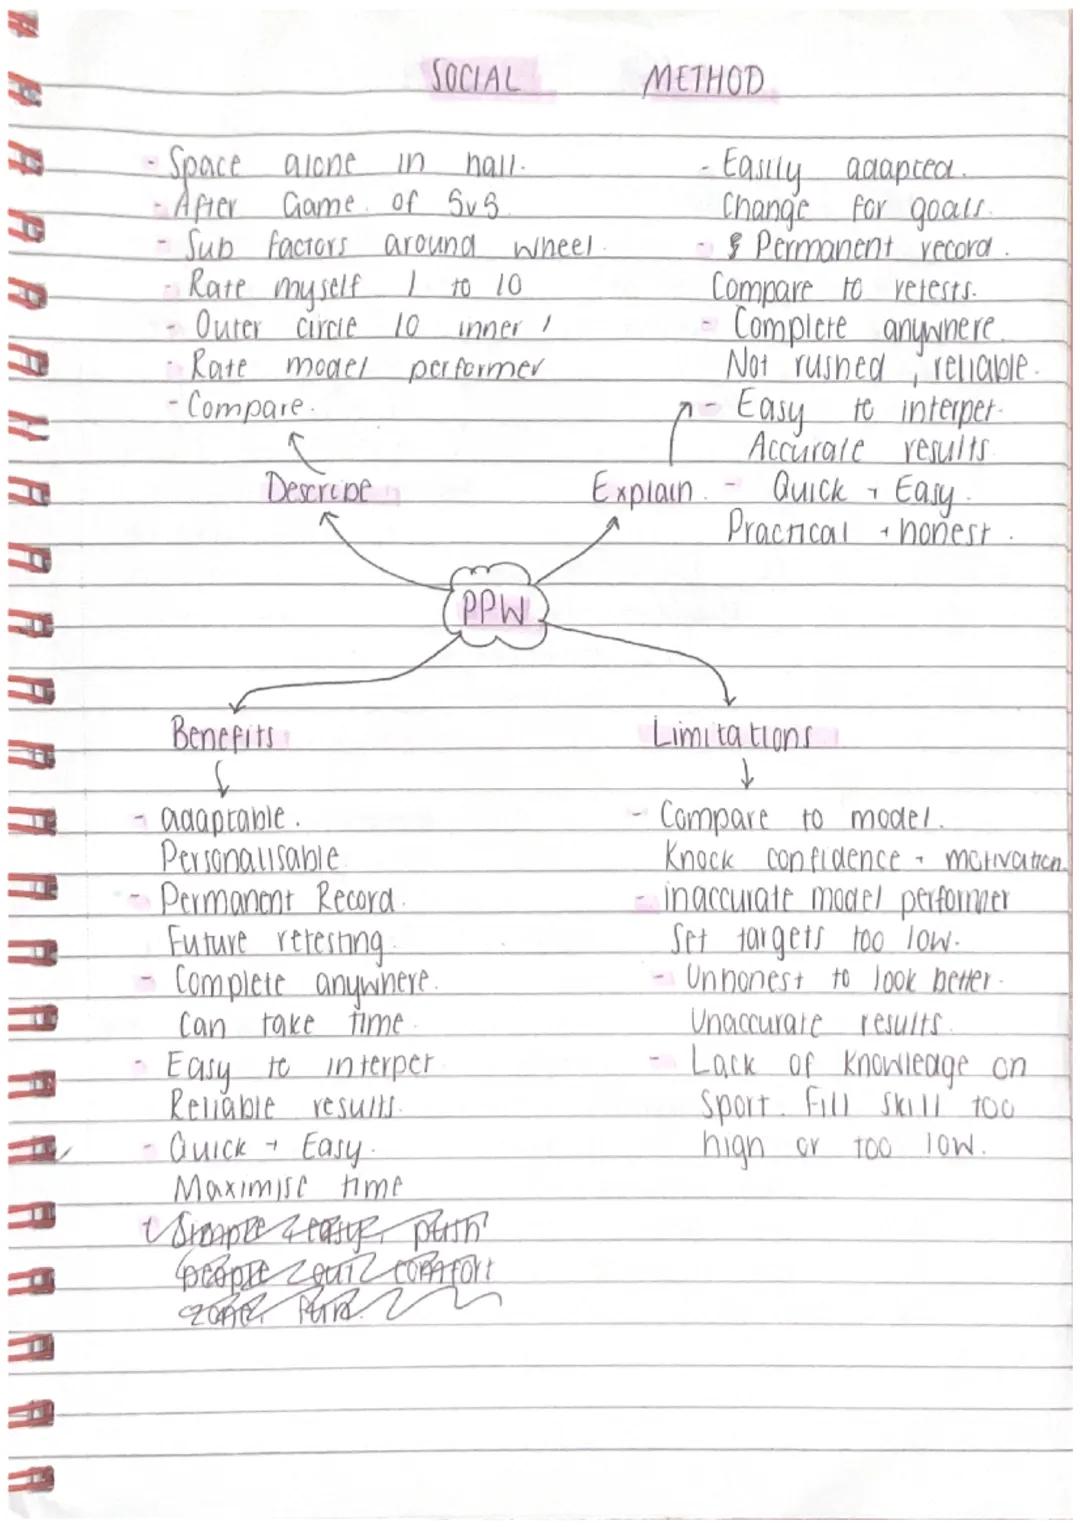 SOCIAL METHOD
- Space alone in hall.
- After Game of 5v5
- Sub factors around wheel.
- Rate myself 1 to 10
- Outer circle 10 inner 1
- Rate model performer
- Compare.
Describe
- Easily adapted.
Change for goals.
- Permanent record.
Compare to retests.
- Complete anywhere.
Not rushed, reliable.
- Easy to interper.
Accurate results
Explain.
- Quick + Easy.
Practical + honest.
PPW
Benefits
- adaptable.
Personalisable
- Permanent Record.
Future retesting.
- Complete anywhere.
Can take time.
- Easy to interper
Reliable results.
- Quick + Easy.
Maximise time
Limitations
- Compare to model.
Knock confidence + motivation.
- inaccurate model performer
Set targets too low.
- Unhonest to look better.
Unaccurate results.
- Lack of knowledge on
Sport. Fill skill too
high or too low.